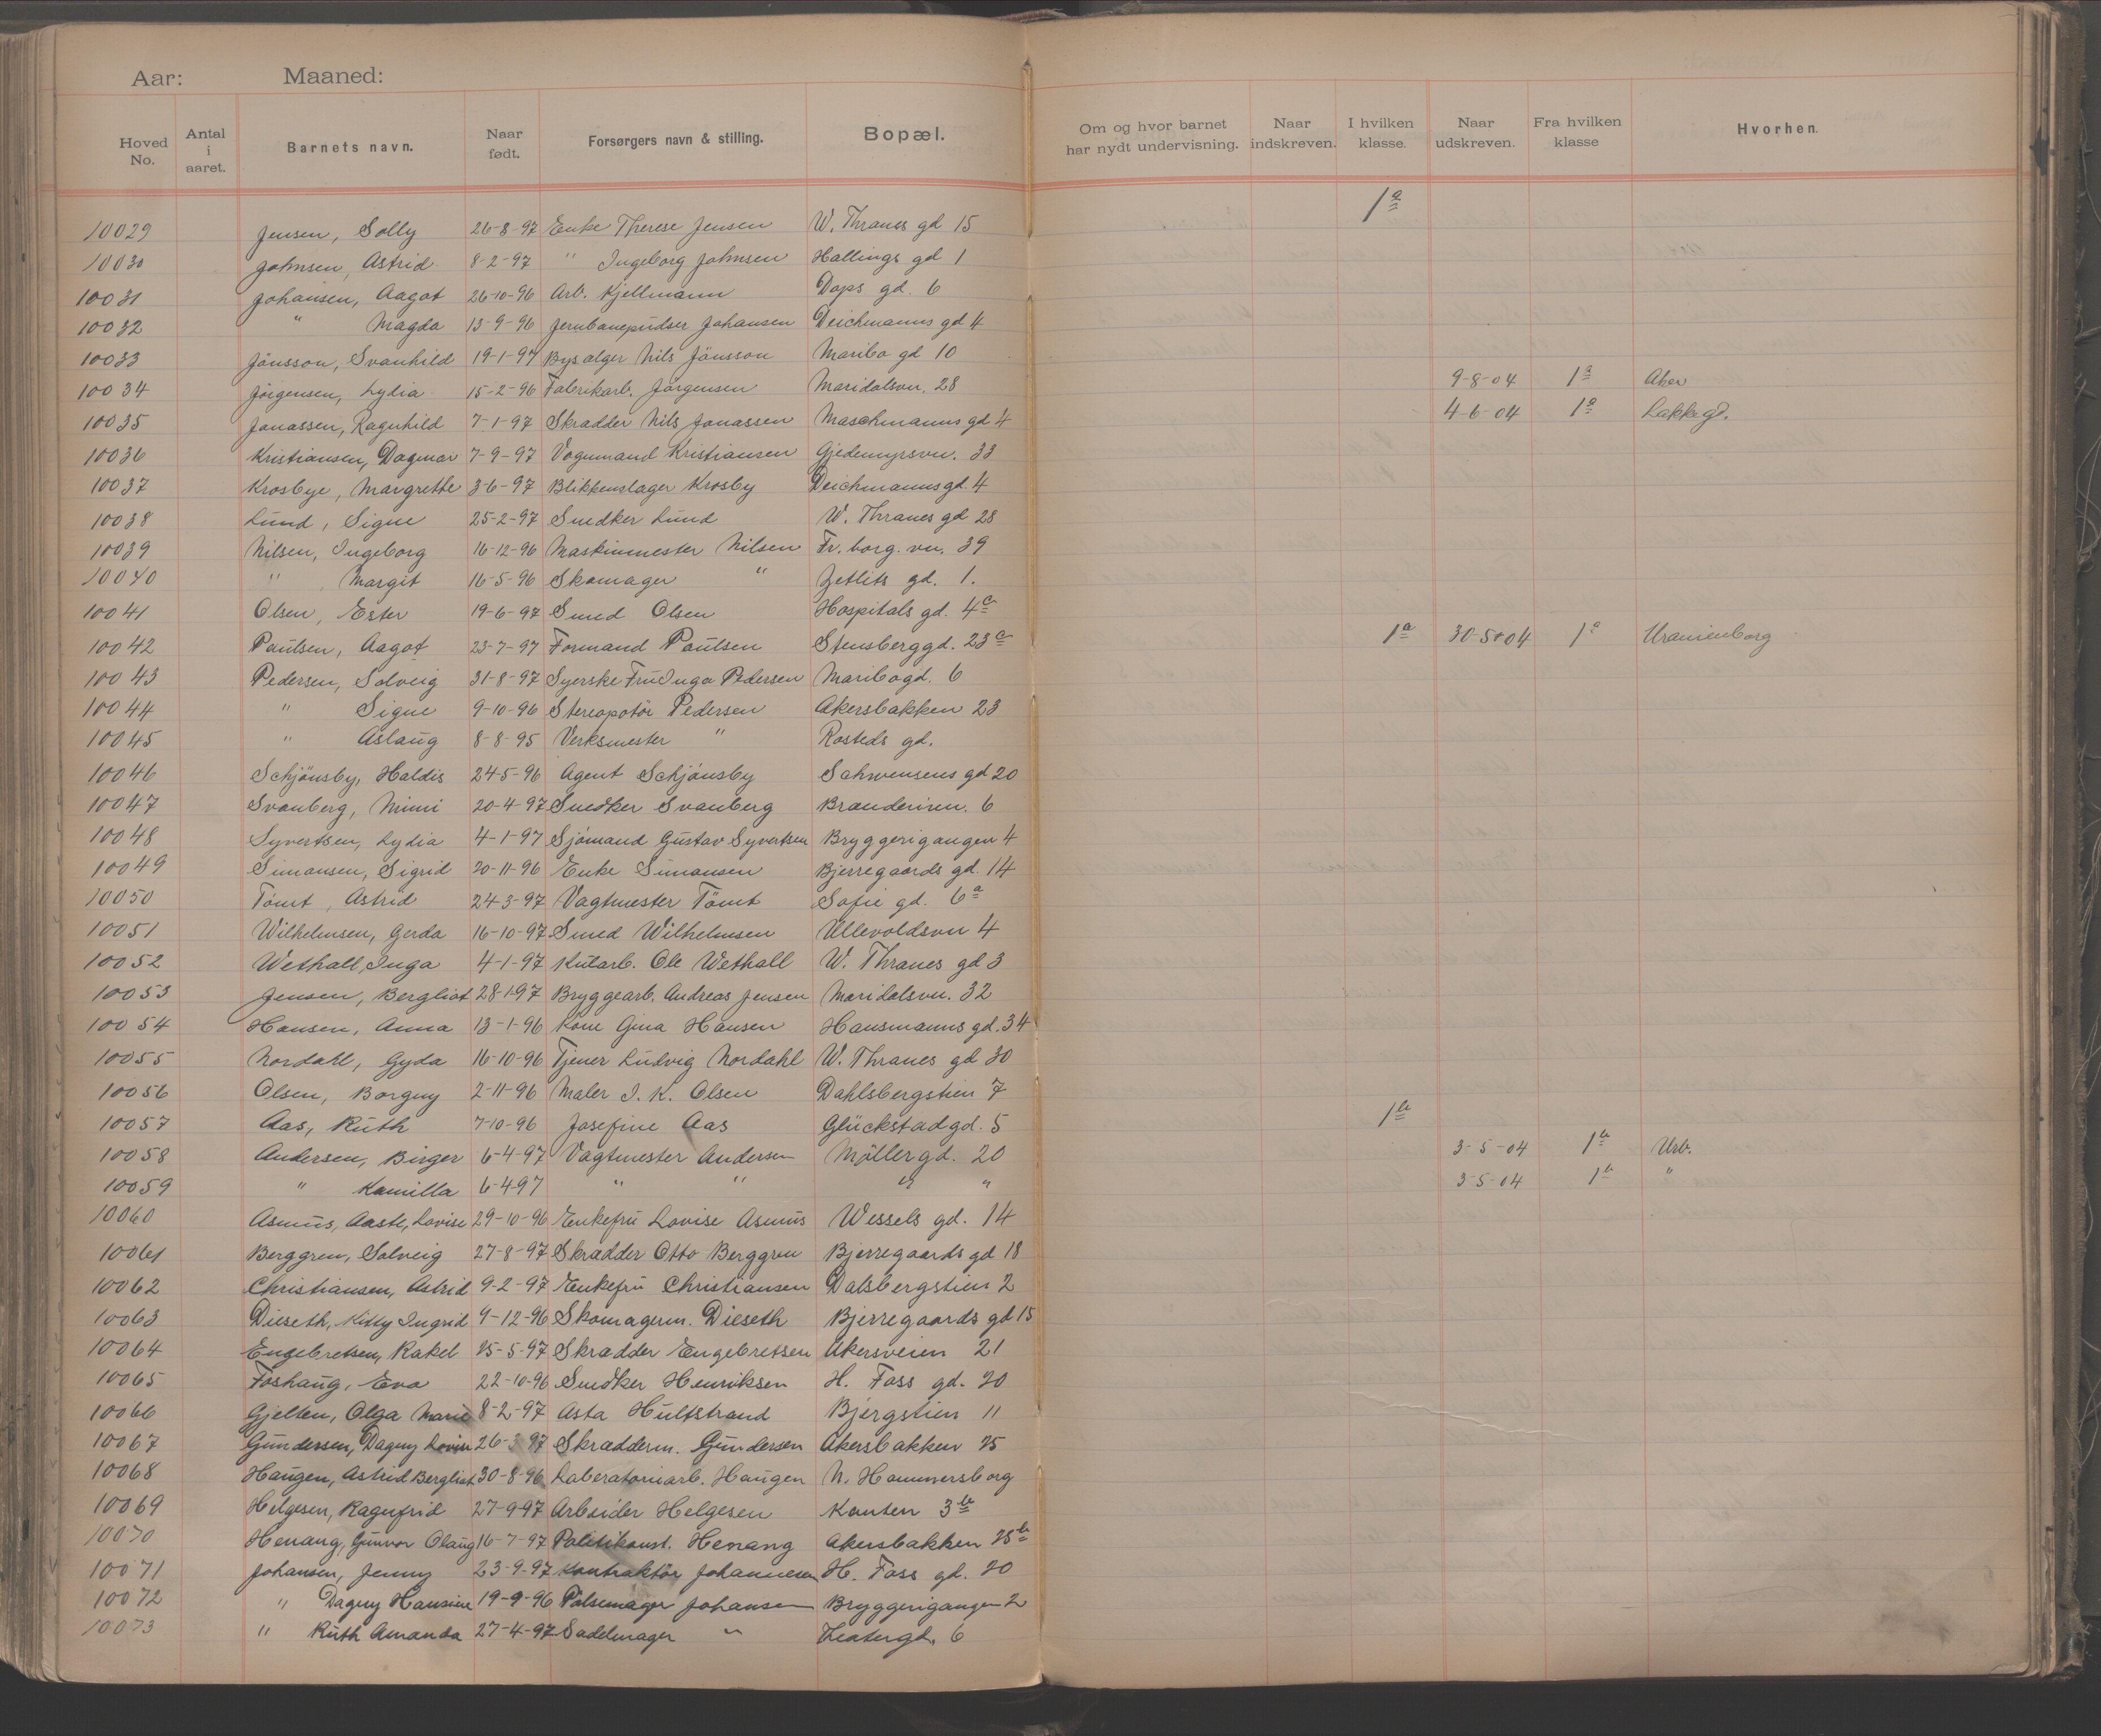 Aar: Maaned:
Hoved No. Antal i aaret. Barnets navn. Naar født. Forsørgers navn & stilling. Bopæl. Om og hvor barnet har nydt undervisning. Naar indskreven. I hvilken klasse. Naar udskreven. Fra hvilken klasse Hvorhen.
1a
10029 Jensen, Solly 26-8-97 Enke Therese Jensen W. Thranes gd 15
10030 Johnsen, Astrid 8-2-97 " Ingeborg Johnsen Hallings gd 1
10031 Johansen, Aagot 26-10-96 Arb. Kjellmann Dops gd. 6
10032 " Magda 13-9-96 Jernbanepudser Johansen Deichmanns gd 4
10033 Jönsson, Svanhild 19-1-97 Bysælger Nils Jönsson Maribo gd 10
10034 Jörgensen, Lydia 15-2-96 Fabrikarb. Jörgensen Maridalsvn. 28 9-8-04 1a Aker
10035 Jonassen, Ragnhild 7-1-97 Skradder Nils Jonassen Maschmanns gd 4 4-6-04 1a Lakkegd.
10036 Kristiansen, Dagmar 7-9-97 Vognmand Kristiansen Gjedemyrsvn. 33
10037 Krosbye, Margrethe 3-6-97 Blikkenslager Krosby Deichmannsgd. 4
10038 Lund, Signe 25-2-97 Snedker Lund W. Thranes gd 28
10039 Nilsen, Ingeborg 16-12-96 Maskinmester Nilsen Fr. borg. vn. 39
10040 " Margit 16-5-96 Skomager " Zetlits gd. 1.
10041 Olsen, Ester 19-6-97 Smed Olsen Hospitals gd. 4c
10042 Paulsen, Aagot 23-7-97 Formand Paulsen Stensberggd. 23c 1a 30-5-04 1a Uranienborg
10043 Pedersen, Solveig 31-8-97 Syerske Fru Inga Pedersen Maribogd. 6
10044 " Signe 9-10-96 Stereopotör Pedersen Akersbakken 23
10045 " Aslaug 8-8-95 Verksmester " Rosteds gd.
10046 Schjönsby, Haldis 24-5-96 Agent Schjönsby Schwensens gd 20
10047 Svanberg, Mimi 20-4-97 Snedker Svanberg Brænderivn. 6
10048 Syvertsen, Lydia 4-1-97 Sjömand Gustav Syvertsen Bryggerigangen 4
10049 Simonsen, Sigrid 20-11-96 Enke Simonsen Bjerregaards gd. 14
10050 Tömt, Astrid 24-3-97 Vagtmester Tömt Sofie gd. 6a
10051 Wilhelmsen, Gerda 16-10-97 Smed Wilhelmsen Ullevoldsvn 4
10052 Wethall, Inga 4-1-97 Kularb. Ole Wethall W. Thranes gd 3
10053 Jensen, Bergliot 28-1-97 Bryggearb. Andreas Jensen Maridalsvn. 32
10054 Hansen, Anna 13-1-96 Kone Gina Hansen Hausmanns gd. 34
10055 Nordahl, Gyda 16-10-96 Tjener Ludvig Nordahl W. Thranes gd 30
10056 Olsen, Borgny 2-11-96 Maler I. K. Olsen Dahlsbergstien 7
10057 Aas, Ruth 7-10-96 Josefine Aas Glückstadgd. 5 1b
10058 Andersen, Birger 6-4-97 Vagtmester Andersen Möllergd. 20 3-5-04 1b Urb.
10059 " Kamilla 6-4-97 " " " " 3-5-04 1b "
10060 Asmus, Aaste, Lovise 29-10-96 Enkefru Lovise Asmus Wessels gd. 14
10061 Berggren, Solveig 27-8-97 Skrædder Otto Berggren Bjerregaards gd 18
10062 Christiansen, Astrid 9-2-97 Enkefru Christiansen Dalsbergstien 2
10063 Dieseth, Kitty Ingrid 9-12-96 Skomagerm. Dieseth Bjerregaards gd 15
10064 Engebretsen, Rakel 25-5-97 Skrædder Engebretsen Akersveien 21
10065 Foshaug, Eva 22-10-96 Snedker Henriksen H. Foss gd. 20
10066 Gjelten, Olga Marie 8-2-97 Asta Hultstrand Bjergstien 11
10067 Gundersen, Dagny Lovise 26-3-97 Skrædderm. Gundersen Akersbakken 25
10068 Haugen, Astrid Bergliot 30-8-96 Laboratoriearb. Haugen N. Hammersborg
10069 Helgesen, Ragnfrid 27-9-97 Arbeider Helgesen Kanten 3b
10070 Henang, Gunvor Olaug 16-7-97 Politikonst. Henang Akersbakken 25b
10071 Johansen, Jenny 23-9-97 Kontraktör Johannesen H. Foss gd. 20
10072 " Dagny Hansine 19-9-96 Pølsemager Johansen Bryggerigangen 2
10073 " Ruth Amanda 27-4-97 Sadelmager " Teatergd. 6